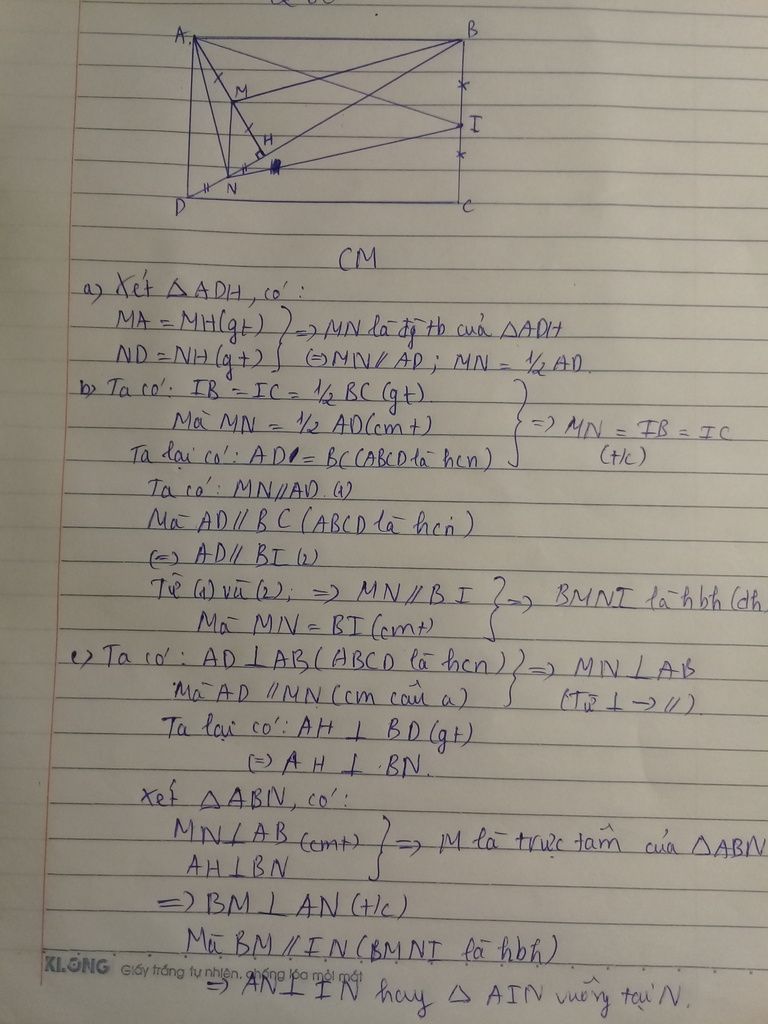 A
B
M
H
I
N
D
C
CM
a) Xét △ADH, có:
MA = MH (gt)
ND = NH (gt)
} => MN là đg tb của △ADH
(=> MN // AD; MN = 1/2 AD.
b) Ta có: IB = IC = 1/2 BC (gt)
Mà MN = 1/2 AD (cmt)
Ta lại có: AD = BC (ABCD là hcn)
} => MN = IB = IC
(t/c)
Ta có: MN // AD. (1)
Mà AD // BC (ABCD là hcn)
(=> AD // BI (2)
Từ (1) và (2); => MN // BI
Mà MN = BI (cmt)
} => BMNI là hbh (dh
c) Ta có: AD ⊥ AB, (ABCD là hcn)
Mà AD // MN (cm câu a)
} => MN ⊥ AB
(Từ ⊥ -> //)
Ta lại có: AH ⊥ BD (gt)
(=> AH ⊥ BN.
Xét △ABN, có:
MN ⊥ AB (cmt)
AH ⊥ BN
} => M là trực tâm của △ABN
=> BM ⊥ AN (t/c)
Mà BM // IN (BMNI là hbh)
KLONG Giấy trắng tự nhiên, chống lóa mỏi mắt
=> AN ⊥ IN hay △ AIN vuông tại N.